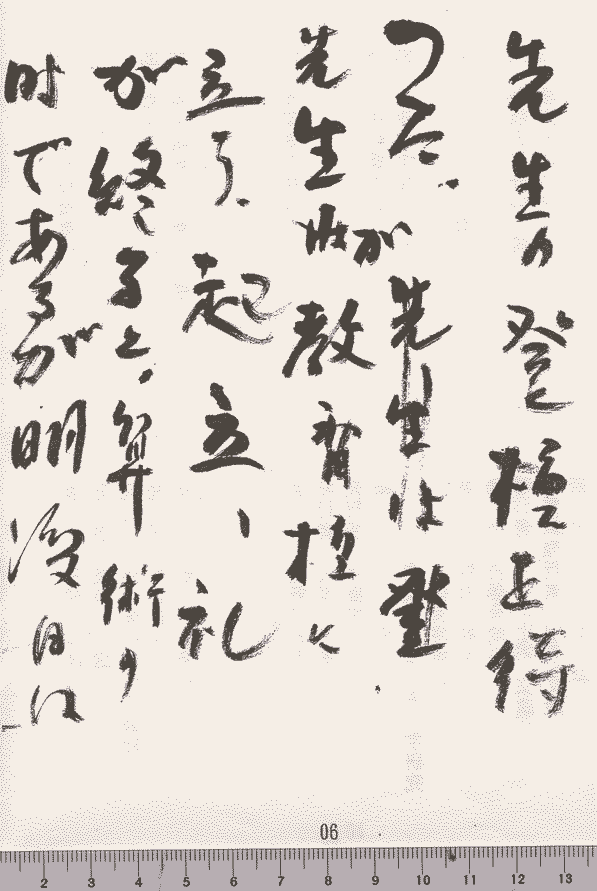 先生の登檀を待
つ
先生が教育檀
立つ、起立、礼
が終ると、算術の
時であるが明後日は
06
2 3 4 5 6 7 8 9 10 11 12 13